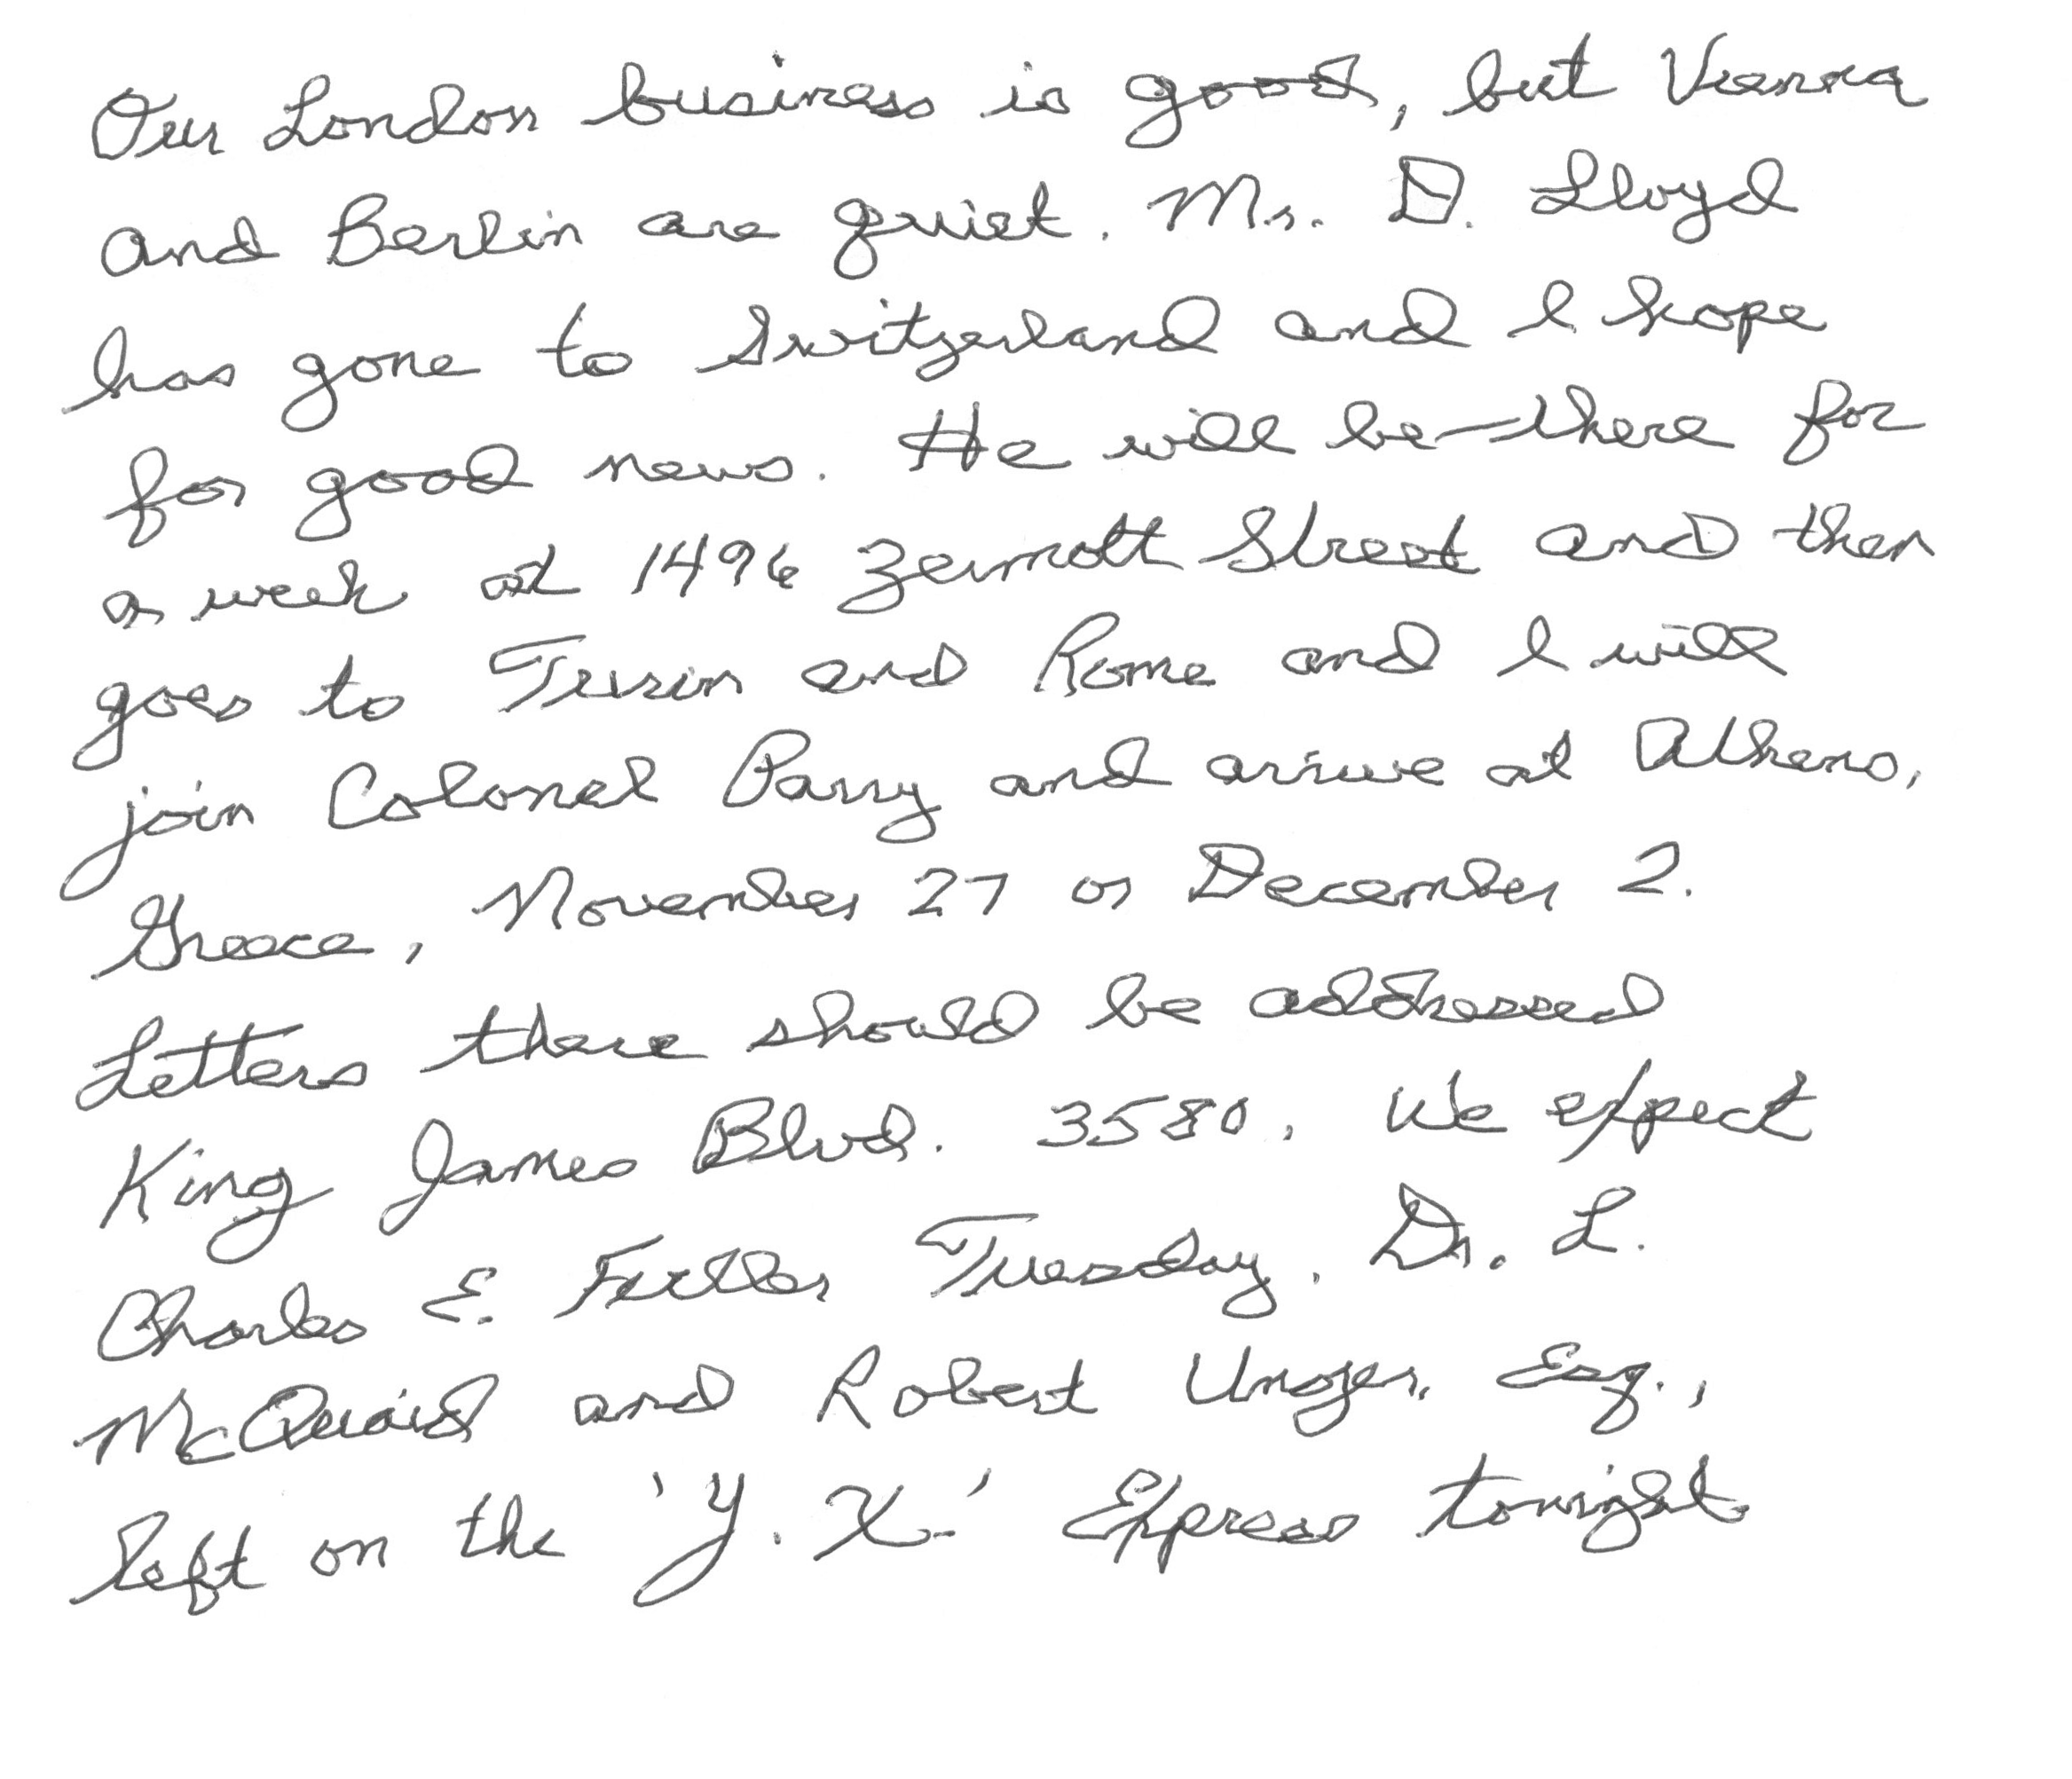 Our London business is good, but Vienna
and Berlin are quiet. Mr. D. Lloyd
has gone to Switzerland and I hope
for good news. He will be there for
a week at 1496 Zermott Street and then
goes to Turin and Rome and I will
join Colonel Parry and arrive at Athens,
Greece, November 27 or December 2.
Letters there should be addressed
King James Blvd. 3580. We expect
Charles E. Fuller Tuesday. Dr. L.
McQuaid and Robert Unger, Esq.,
left on the 'Y. X.' Express tonight